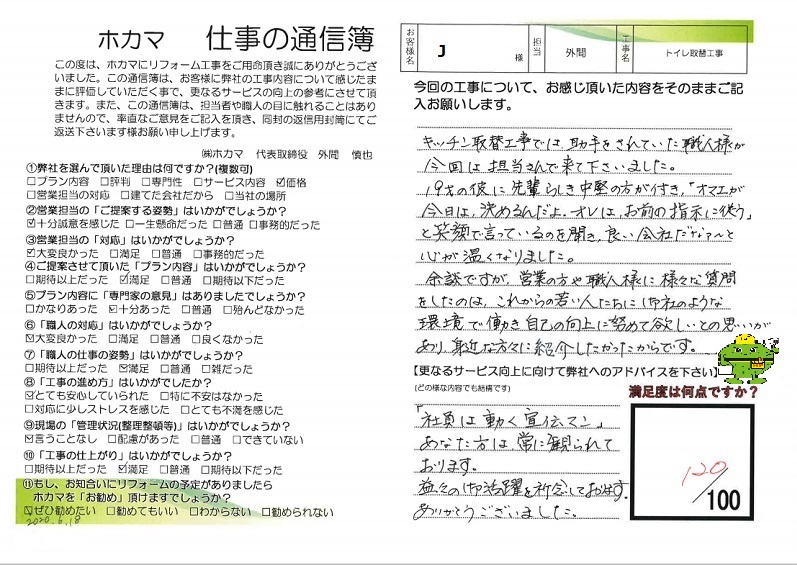 ホカマ 仕事の通信簿
この度は、ホカマにリフォーム工事をご用命頂き誠にありがとうござ
いました。この通信簿は、お客様に弊社の工事内容について感じたま
まに評価していただく事で、更なるサービスの向上の参考にさせて頂
きます。また、この通信簿は、担当者や職人の目に触れることはあり
ませんので、率直なご意見をご記入を頂き、同封の返信用封筒にてご
返送下さいます様お願い申し上げます。
㈱ホカマ 代表取締役 外間 慎也
①弊社を選んで頂いた理由は何ですか?(複数可)
□プラン内容 □評判 □専門性 □サービス内容 ☑価格
□営業担当の対応 □建てた会社だから □当社の場所
②営業担当の「ご提案する姿勢」はいかがでしょうか?
☑十分誠意を感じた □一生懸命だった □普通 □事務的だった
③営業担当の「対応」はいかがでしょうか?
☑大変良かった □満足 □普通 □事務的だった
④ご提案させて頂いた「プラン内容」はいかがでしょうか?
□期待以上だった ☑満足 □普通 □期待以下だった
⑤プラン内容に「専門家の意見」はありましたでしょうか?
□かなりあった ☑十分あった □普通 □殆んどなかった
⑥「職人の対応」はいかがでしょうか?
☑大変良かった □満足 □普通 □良くなかった
⑦「職人の仕事の姿勢」はいかがでしょうか?
□期待以上だった ☑満足 □普通 □雑だった
⑧「工事の進め方」はいかがでしたか?
☑とても安心していられた □特に不安はなかった
□対応に少しストレスを感じた □とても不満を感じた
⑨現場の「管理状況(整理整頓等)」はいかがでしょうか?
☑言うことなし □配慮があった □普通 □できていない
⑩「工事の仕上がり」はいかがでしょうか?
□期待以上だった ☑満足 □普通 □期待以下だった
⑪もし、お知合いにリフォームの予定がありましたら
ホカマを「お勧め」頂けますでしょうか?
☑ぜひ勧めたい □勧めてもいい □わからない □勧められない
2020.6.18
お客様名 J 様 担当 外間 工事名 トイレ取替工事
今回の工事について、お感じ頂いた内容をそのままご記
入お願いします。
キッチン取替工事では、助手をされていた職人様が
今回は担当さんで来て下さいました。
19才の彼に先輩らしき中堅の方が付き、「オマエが
今日は、決めるんだよ。オレは、お前の指示に従う」
と笑顔で言っているのを聞き、良い会社だなァ〜と
心が温くなりました。
余談ですが、営業の方や職人様に様々な質問
をしたのは、これからの若い人たちに御社のような
環境で働き自己の向上に努めて欲しいとの思いが
あり、身近な方々に紹介したかったからです。
【更なるサービス向上に向けて弊社へのアドバイスを下さい】
(どの様な内容でも結構です)
「社員は動く宣伝マン」
あなた方は、常に観られて
おります。
益々の御活躍を祈念しております。
ありがとうございました。
満足度は何点ですか?
120/100